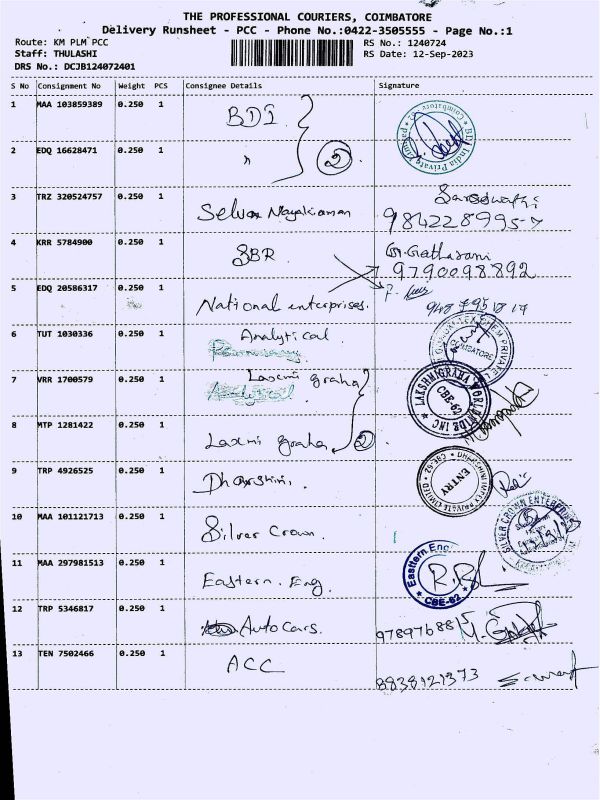 THE PROFESSIONAL COURIERS, COIMBATORE
Delivery Runsheet - PCC - Phone No.:0422-3505555 - Page No.:1
Route: KM PLM PCC
RS No.: 1240724
Staff: THULASHI
RS Date: 12-Sep-2023
DRS No.: DCJB124072401
S No Consignment No Weight PCS Consignee Details Signature
1 MAA 103859389 0.250 1 BDI
BDI India Private Limited * Coimbatore *
2 EDQ 16628471 0.250 1 " 2
3 TRZ 320524757 0.250 1 Selva Nayakiaman Saraswathi
9842289957
4 KRR 5784900 0.250 1 SBR
9790098892
5 EDQ 20586317 0.250 1 National enterprises.
6 TUT 1030336 0.250 1 Analytical
CHEM PRIVATE
COIMBATORE
7 VRR 1700579 0.250 1 Laxmi graha
Analytical
LAKSHMIGRAHA WORLDWIDE INC
CBE-62
8 MTP 1281422 0.250 1 Laxmi graha 2
9 TRP 4926525 0.250 1 Dharshini.
DHARSHINI IMPEX PRIVATE LIMITED
ENTRY
10 MAA 101121713 0.250 1 Silver Crown.
SILVER CROWN ENTERPRISES
11 MAA 297981513 0.250 1 Eastern. Eng
Eastern Eng
CBE-62
12 TRP 5346817 0.250 1 Auto Cars. 9789768815
13 TEN 7502466 0.250 1 ACC
8838121373